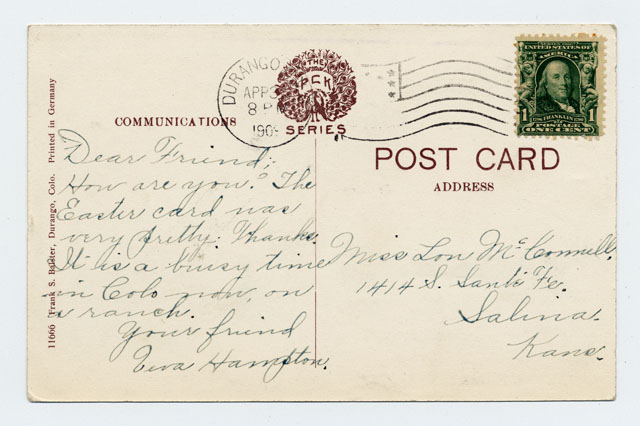 DURANGO
APR 3
8 P M
1909
THE
PCK
SERIES
UNITED STATES OF
AMERICA
FRANKLIN
1 1
POSTAGE
ONE CENT
COMMUNICATIONS
POST CARD
ADDRESS
Dear Friend;
How are you? The
Easter card was
very pretty. Thanks.
It is a busy time
in Colo now, on
a ranch.
Your friend
Hampton.
Miss Lon McConnell,
1414 S. Santa Fe.
Salina.
Kans.
11666 Frank S. Durango, Colo. Printed in Germany